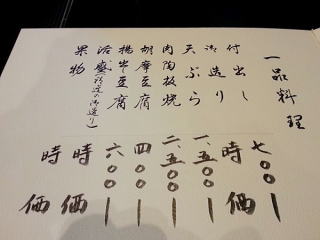 一品料理
付出し 七〇〇ー
御造り 時価
天ぷら 一、五〇〇ー
肉陶板焼 二、五〇〇ー
胡摩豆腐 四〇〇ー
揚出し豆腐 六〇〇ー
活盛(一匹造の御造り) 時価
果物 時価